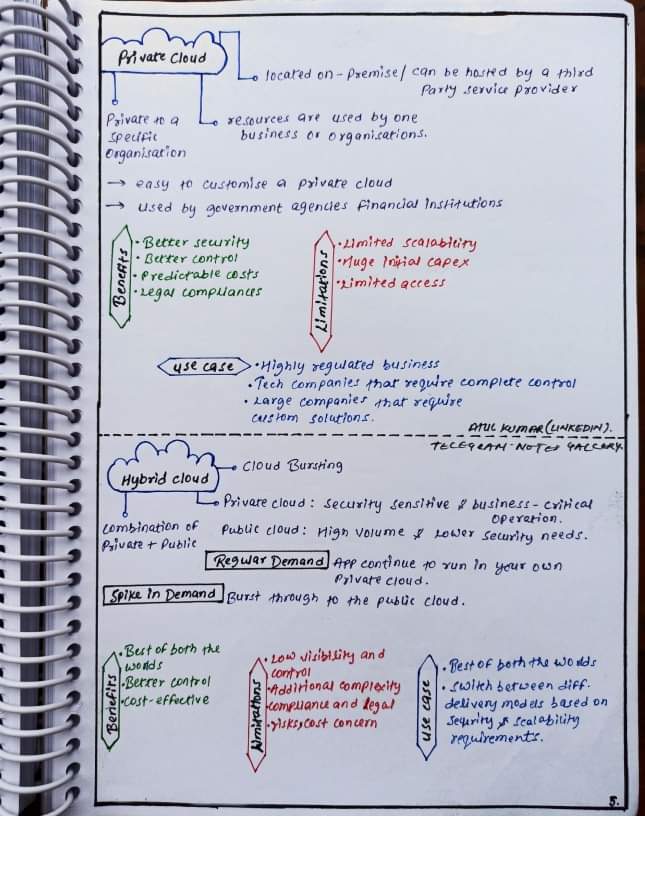 Private Cloud
located on-Premise/ can be hosted by a third
Party service provider
Private to a
specific
organisation
resources are used by one
business or organisations.
→ easy to customise a private cloud
→ used by government agencies financial institutions
Benefits
• Better security
• Better control
• Predictable costs
• Legal compliances
Limitations
• Limited scalability
• Huge initial capex
• Limited access
use case
• Highly regulated business
• Tech companies that require complete control
• Large companies that require
custom solutions.
ATUL KUMAR (LINKEDIN).
TELEGRAM-NOTES GALLERY.
Hybrid cloud
Cloud Bursting
combination of
Private + Public
Private cloud : security sensitive & business-critical
operation.
Public cloud : High volume & Lower security needs.
Regular Demand
App continue to run in your own
Private cloud.
Spike in Demand
Burst through to the public cloud.
Benefits
• Best of both the
worlds
• Better control
• cost-effective
limitations
• Low visibility and
control
• Additional complexity
• compliance and legal
• risks, cost concern
use case
• Best of both the worlds
• switch between diff.
delivery models based on
security & scalability
requirements.
5.